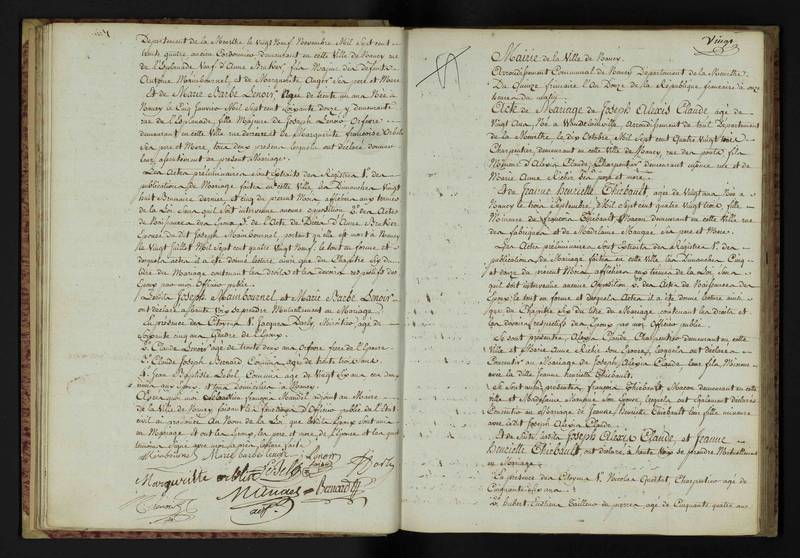 Departement de la Meurthe le Vingt Neuf Novembre Mil Sept cent
trente quatre ancien Cordonnier demeurant en cette Ville de Nancy rue
de l'Esplanade Veuf d'Anne Brukier, fils Majeur des défunts
Antoine Mainbournel, et de Marguerite Auger Ses pere et Mere
Et de Marie Barbe Lenoir Agée de trente un ans Née à
Nancy le Cinq Janvier Mil Sept cent Soixante douze, y demeurante
rue de l'Esplanade, fille Majeure de Joseph Lenoir Orfevre
demeurant en cette Ville rue et de Marguerite françoise
Ses pere et Mere, tous deux presens lesquels ont déclaré donner
leur assentiment au present Mariage.
Les Actes préliminaires sont Extraits des Registres 1°. des
publications de Mariage faites en cette Ville, les Dimanches Vingt
huit Brumaire dernier, et cinq du present Mois, affichées aux termes
de la Loi, Sans qu'il soit intervenu aucune opposition 2°. des Actes
de Naissances des Epoux 3°. de l'Acte de Décès d'Anne Brukier
Epouse dudit Joseph Mainbournel, portant qu'elle est morte à Nancy
le Vingt Juillet Mil Sept cent quatre Vingt Neuf, le tout en forme, et
desquels actes il a été donné lecture ainsi que du Chapitre Six du
titre du Mariage contenant les droits et les devoirs respectifs des
Epoux par moi Officier public.
Lesdits Joseph Mainbournel, et Marie Barbe Lenoir
ont déclaré à haute Voix se prendre Mutuellement en Mariage
En presence des Citoyens 1°. Jacques Darly, Menuisier, agé de
Soixante cinq ans
2°. Claude Lenoir agé de trente deux ans Orfevre frere de l'Epouse
3°. Claude Joseph Bernard Commis agé de trente trois ans
4°. Jean Baptiste Lebel, Commis agé de Vingt Six ans
aux Epoux, et tous domiciliés à Nancy.
Après quoi moi Sébastien françois Mandel adjoint au Maire
de la Ville de Nancy, faisant les fonctions d'Officier public de l'Etat
civil ai prononcé Au Nom de la Loi que lesdits Epoux sont unis
en Mariage Et ont les Epoux, les pere et mere de l'Epouse et les
témoins Signé avec moi après lecture faite
Marie barbe lenoir Lenoir Darly
Margueritte
Lebel
Mandel Bernard
adjt
Vingt
Mairie de la Ville de Nancy.
Arrondissement Communal de Nancy Departement de la Meurthe.
Du Quinze frimaire l'an Douze de la République française à onze
heures du matin
Acte de Mariage de Joseph Alexis Claude, agé de
Vingt ans Né à Arrondissement de Toul Departement
de la Meurthe, le dix Octobre Mil Sept cent Quatre Vingt trois
Charpentier demeurant en cette Ville de Nancy, rue des ponts, fils
Mineur d'Alexis Claude Charpentier demeurant même rue et de
Marie Anne Richer Ses pere et mere.
Et de Jeanne Henriette Thiébault, agée de Vingt ans Née à
Nancy le trois Septembre Mil Sept cent quatre Vingt trois, fille
Mineure de françois Thiébault Macon demeurant en cette Ville rue
des fabriques, et de Madelaine Marque Ses pere et Mere.
Les Actes préliminaires sont Extraits des Registres 1°. des
publications de Mariage faites en cette Ville, les Dimanches Cinq
et douze du present Mois affichées aux termes de la Loi, Sans
qu'il soit intervenu aucune Opposition 2°. des Actes de Naissances des
Epoux, le tout en forme, et desquels Actes il a été donné lecture ainsi
que du Chapitre Six du titre du Mariage contenant les droits et
les devoirs respectifs des Epoux par moi Officier public.
Se sont présentés, Alexis Claude Charpentier demeurant en cette
Ville et Marie Anne Richer Son Epouse, lesquels ont déclaré
Consentir au Mariage de Joseph Alexis Claude, leur fils Mineur
avec la dite Jeanne Henriette Thiébault.
Se sont aussi présentés, françois Thiébault Macon demeurant en cette
Ville et Madelaine Son Epouse, lesquels ont également déclaré
Consentir au Mariage de Jeanne Henriette Thiébault leur fille mineure
avec ledit Joseph Alexis Claude.
Et de suite lesdits Joseph Alexis Claude, et Jeanne
Henriette Thiébault, ont déclaré, à haute Voix se prendre Mutuellement
en Mariage.
En presence des Citoyens 1°. Nicolas Charpentier agé de
Cinquante Six ans
2°. hubert Tailleur de pierres agé de Cinquante quatre ans